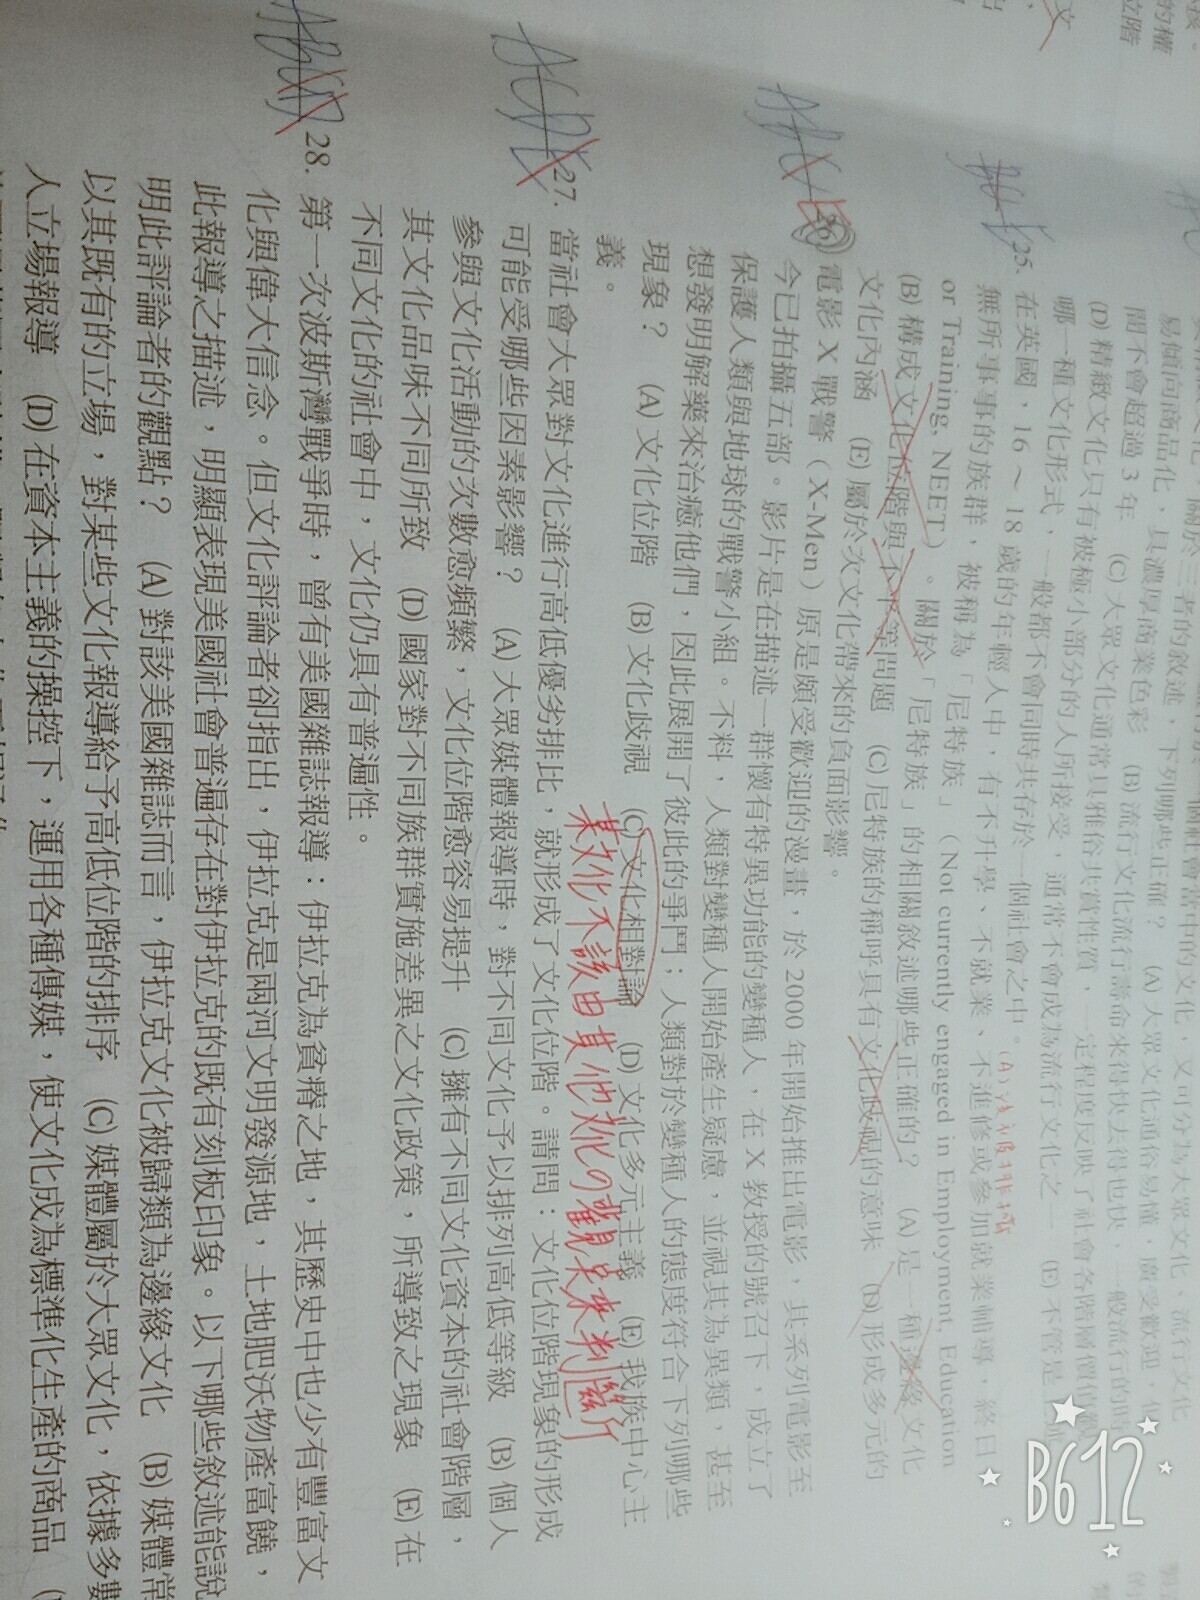 易傾向商品化 具濃厚商業色彩 (B) 流行文化流行壽命來得快去得也快，一般流行的時
間不會超過 3 年 (C) 大眾文化通常具雅俗共賞性質，一定程度反映了社會各階層價值觀
(D) 精緻文化只有被極小部分的人所接受，通常不會成為流行文化之 (E) 不管是
哪一種文化形式，一般都不會同時共存於一個社會之中。
25. 在英國，16～18 歲的年輕人中，有不升學、不就業、不進修或參加就業輔導，終日
無所事事的族群，被稱為「尼特族」（Not currently engaged in Employment, Education
or Training, NEET）。關於「尼特族」的相關敘述哪些正確的？ (A) 是一種邊緣文化
(B) 構成文化位階與不平等問題 (C) 尼特族的稱呼具有文化歧視的意味 (D) 形成多元的
文化內涵 (E) 屬於次文化帶來的負面影響。
26. 電影 X 戰警（X-Men）原是頗受歡迎的漫畫，於 2000 年開始推出電影，其系列電影至
今已拍攝五部。影片是在描述一群懷有特異功能的變種人，在 X 教授的號召下，成立了
保護人類與地球的戰警小組。不料，人類對變種人開始產生疑慮，並視其為異類，甚至
想發明解藥來治癒他們，因此展開了彼此的爭鬥；人類對於變種人的態度符合下列哪些
現象？ (A) 文化位階 (B) 文化歧視 (C) 文化相對論 (D) 文化多元主義 (E) 我族中心主
義。
某文化不該由其他文化の觀點來判斷
27. 當社會大眾對文化進行高低優劣排比，就形成了文化位階。請問：文化位階現象的形成
可能受哪些因素影響？ (A) 大眾媒體報導時，對不同文化予以排列高低等級 (B) 個人
參與文化活動的次數愈頻繁，文化位階愈容易提升 (C) 擁有不同文化資本的社會階層，
其文化品味不同所致 (D) 國家對不同族群實施差異之文化政策，所導致之現象 (E) 在
不同文化的社會中，文化仍具有普遍性。
28. 第一次波斯灣戰爭時，曾有美國雜誌報導：伊拉克為貧瘠之地，其歷史中也少有豐富文
化與偉大信念。但文化評論者卻指出，伊拉克是兩河文明發源地，土地肥沃物產富饒，
此報導之描述，明顯表現美國社會普遍存在對伊拉克的既有刻板印象。以下哪些敘述能說
明此評論者的觀點？ (A) 對該美國雜誌而言，伊拉克文化被歸類為邊緣文化 (B) 媒體常
以其既有的立場，對某些文化報導給予高低位階的排序 (C) 媒體屬於大眾文化，依據多數
人立場報導 (D) 在資本主義的操控下，運用各種傳媒，使文化成為標準化生產的商品
B612